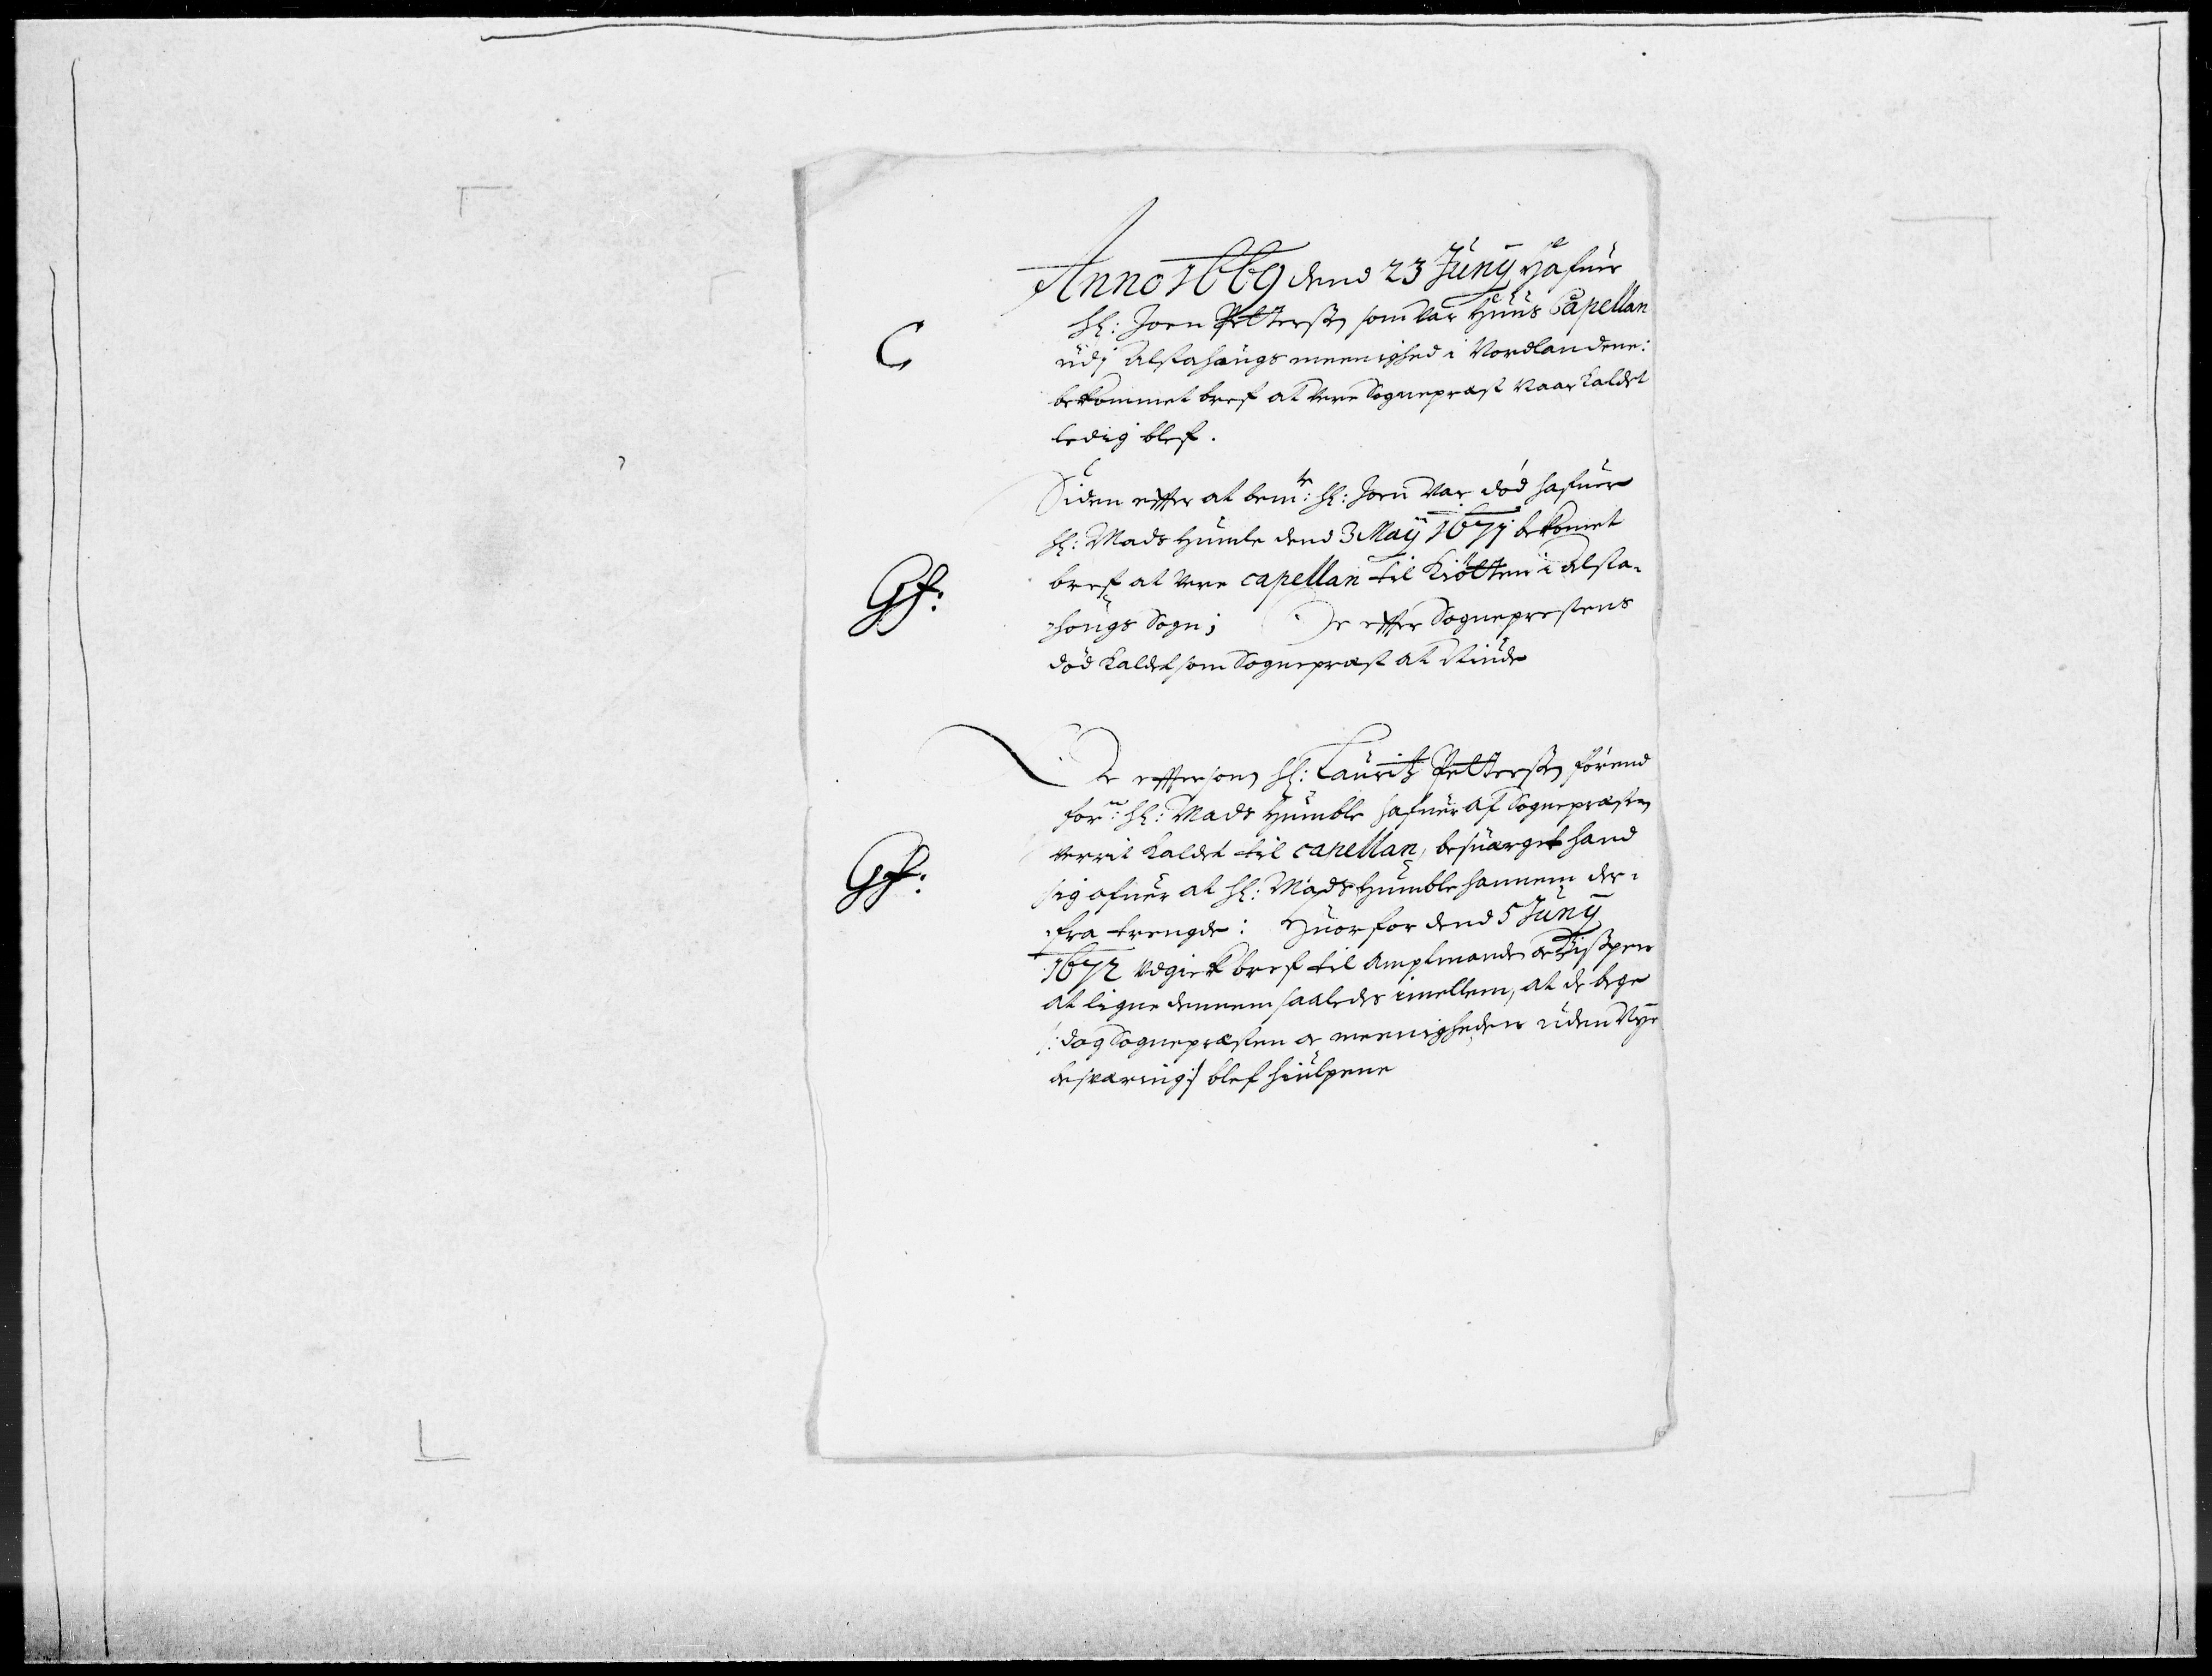 Anno 1669 dend 23 Junij Hafuer
C
Hl: Joen Pettersøn som var Huus Capellan
udj Alstahaugs meenighed i Nordlandene:
bekommet bref at vere Sognepræst Naar Kaldet
ledig blef.
Siden effter at bemte: Hl: Joen var død hafuer
Hl: Mads Humle dend 3 Maij 1671 bekomet
Gf:
bref at vere capellan til Kiøtten i Alsta-
hougs Sogn; Oc effter Sogneprestens
død Kaldet som Sognepræst at
Oc effter som Hl: Lauritz Pettersøn førend
forne: Hl: Mads Humble hafuer af Sognepræsten
Gf:
verrit Kaldet til capellan, besuærget hand
sig ofuer at Hl: Mads Humble hannem der-
fra trengde: Huorfor dend 5 Junij
1672 udgick bref til Amptmanden oc Bispen
at ligne dennem saaledes imellem, at de bege
/: dog Sognepræsten oc meenigheden uden Nye
besværing :/ blef hiulpene